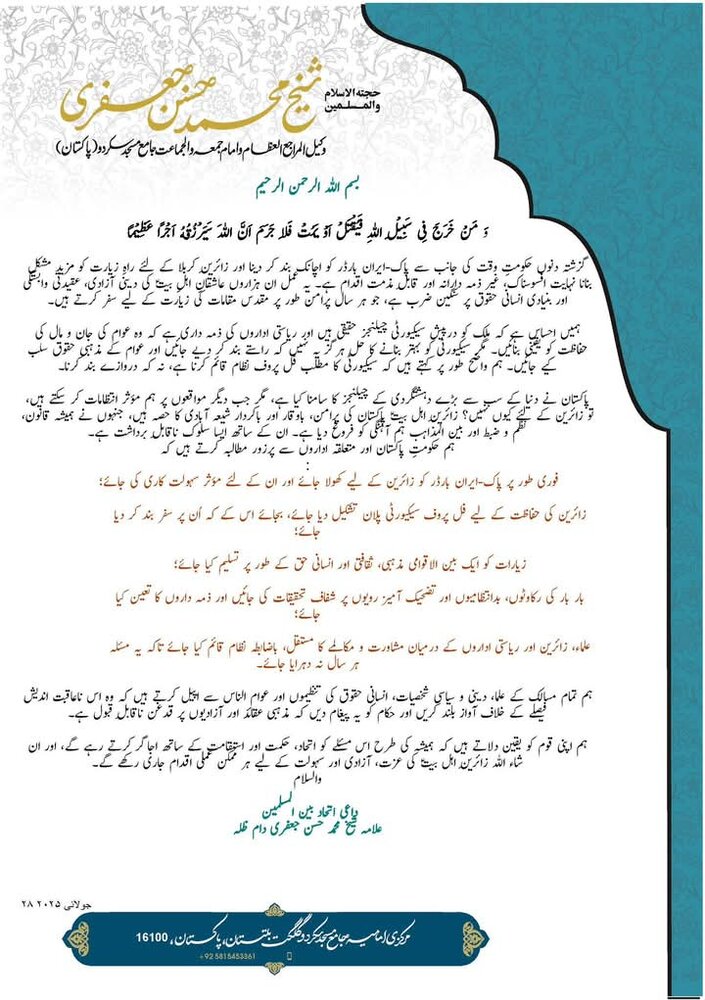 حجتہ الاسلام
والمسلمین
شیخ محمد حسن جعفری
وکیل المراجع العظام و امام جمعہ والجماعت جامع مسجد سکردو (پاکستان)
بسم اللہ الرحمن الرحیم
وَ مَنْ خَرَجَ فِی سَبِیْلِ اللہِ فَیُقْتَلْ اَوْ یَمُتْ فَلَا جَرَمَ اَنَّ اللہَ سَیَرْزُقُہُ اَجْرًا عَظِیْمًا
گزشتہ دنوں حکومتِ وقت کی جانب سے پاک-ایران بارڈر کو اچانک بند کر دینا اور زائرینِ کربلا کے لئے راہِ زیارت کو مزید مشکل
بنانا نہایت افسوسناک، غیر ذمہ دارانہ اور قابلِ مذمت اقدام ہے۔ یہ عمل ان ہزاروں عاشقانِ اہلِ بیتؑ کی دینی آزادی، عقیدتی وابستگی
اور بنیادی انسانی حقوق پر سنگین ضرب ہے، جو ہر سال پُرامن طور پر مقدس مقامات کی زیارت کے لیے سفر کرتے ہیں۔
ہمیں احساس ہے کہ ملک کو درپیش سیکیورٹی چیلنجز حقیقی ہیں اور ریاستی اداروں کی ذمہ داری ہے کہ وہ عوام کی جان و مال کی
حفاظت کو یقینی بنائیں۔ مگر سیکیورٹی کو بہتر بنانے کا حل ہرگز یہ نہیں کہ راستے بند کر دیے جائیں اور عوام کے مذہبی حقوق سلب
کیے جائیں۔ ہم واضح طور پر کہتے ہیں کہ سیکیورٹی کا مطلب فل پروف نظام قائم کرنا ہے، نہ کہ دروازے بند کرنا۔
پاکستان نے دنیا کے سب سے بڑے دہشتگردی کے چیلنجز کا سامنا کیا ہے، مگر جب دیگر مواقعوں پر ہم مؤثر انتظامات کر سکتے ہیں،
تو زائرین کے لئے کیوں نہیں؟ زائرینِ اہلِ بیتؑ پاکستان کی پرامن، باوقار اور باکردار شیعہ آبادی کا حصہ ہیں، جنہوں نے ہمیشہ قانون،
نظم و ضبط اور بین المذاہب ہم آہنگی کو فروغ دیا ہے۔ ان کے ساتھ ایسا سلوک ناقابلِ برداشت ہے۔
ہم حکومتِ پاکستان اور متعلقہ اداروں سے پرزور مطالبہ کرتے ہیں کہ
:
فوری طور پر پاک-ایران بارڈر کو زائرین کے لیے کھولا جائے اور ان کے لئے مؤثر سہولت کاری کی جائے؛
زائرین کی حفاظت کے لیے فل پروف سیکیورٹی پلان تشکیل دیا جائے، بجائے اس کے کہ اُن پر سفر بند کر دیا
جائے؛
زیارات کو ایک بین الاقوامی مذہبی، ثقافتی اور انسانی حق کے طور پر تسلیم کیا جائے؛
بار بار کی رکاوٹوں، بدانتظامیوں اور تضحیک آمیز رویوں پر شفاف تحقیقات کی جائیں اور ذمہ داروں کا تعین کیا
جائے؛
علماء، زائرین اور ریاستی اداروں کے درمیان مشاورت و مکالمے کا مستقل، باضابطہ نظام قائم کیا جائے تاکہ یہ مسئلہ
ہر سال نہ دہرایا جائے۔
ہم تمام مسالک کے علما، دینی و سیاسی شخصیات، انسانی حقوق کی تنظیموں اور عوام الناس سے اپیل کرتے ہیں کہ وہ اس ناعاقبت اندیش
فیصلے کے خلاف آواز بلند کریں اور حکام کو یہ پیغام دیں کہ مذہبی عقائد اور آزادیوں پر قدغن ناقابلِ قبول ہے۔
ہم اپنی قوم کو یقین دلاتے ہیں کہ ہمیشہ کی طرح اس مسئلے کو اتحاد، حکمت اور استقامت کے ساتھ اجاگر کرتے رہے گے، اور ان
شاء اللہ زائرینِ اہلِ بیتؑ کی عزت، آزادی اور سہولت کے لیے ہر ممکن عملی اقدام جاری رکھے گے۔
والسلام
داعی اتحاد بین المسلمین
علامہ شیخ محمد حسن جعفری دام ظلہ
۲۸ جولائی ۲۰۲۵
مرکزی امامیہ جامع مسجد سکردو گلگت بلتستان، پاکستان، 16100
+92 5815453361